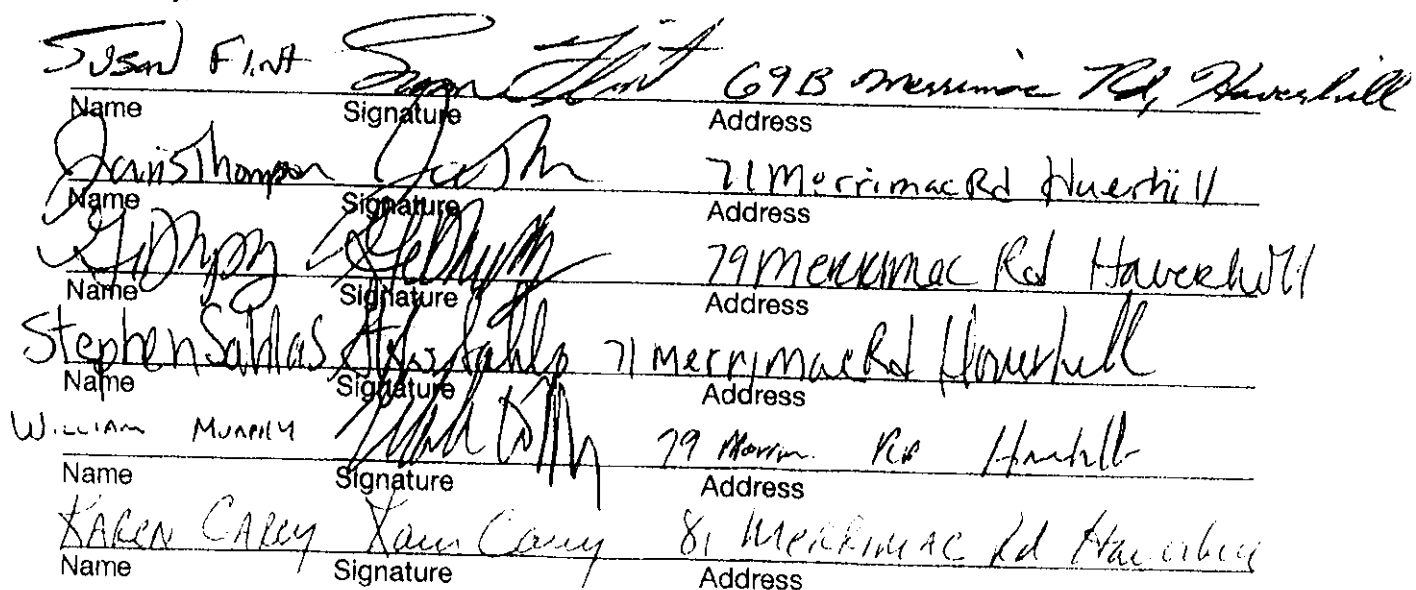 Susan Flint Susan Flint 69B Merrimac Rd, Haverhill
Name Signature Address
Janis Thompson 71 Merrimac Rd Haverhill
Name Signature Address
79 Merrimac Rd Haverhill
Name Signature Address
Stephen Sahlas 71 Merrymac Rd Haverhill
Name Signature Address
William Murphy 79 Rd Haverhill
Name Signature Address
Karen Carey Karen Carey 81 Merrimac Rd Haverhill
Name Signature Address